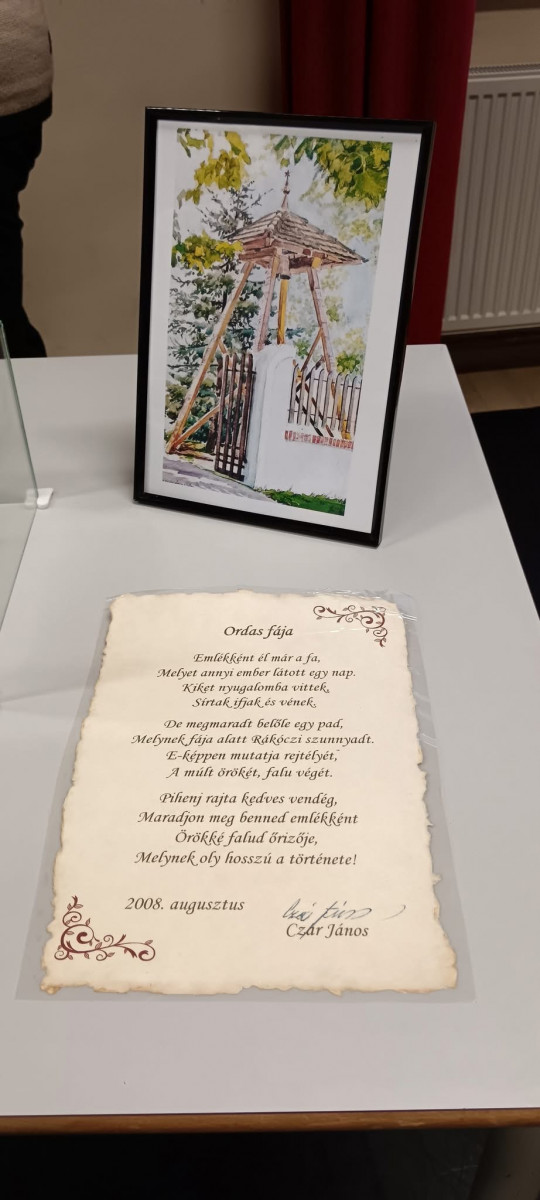 Ordas fája
Emlékként él már a fa,
Melyet annyi ember látott egy nap.
Kiket nyugalomba vittek,
Sírtak ifjak és vének.
De megmaradt belőle egy pad,
Melynek fája alatt Rákóczi szunnyadt.
E-képpen mutatja rejtélyét,
A múlt örökét, falu végét.
Pihenj rajta kedves vendég,
Maradjon meg benned emlékként
Örökké falud őrizője,
Melynek oly hosszú a története!
2008. augusztus
Czár János
Czár János